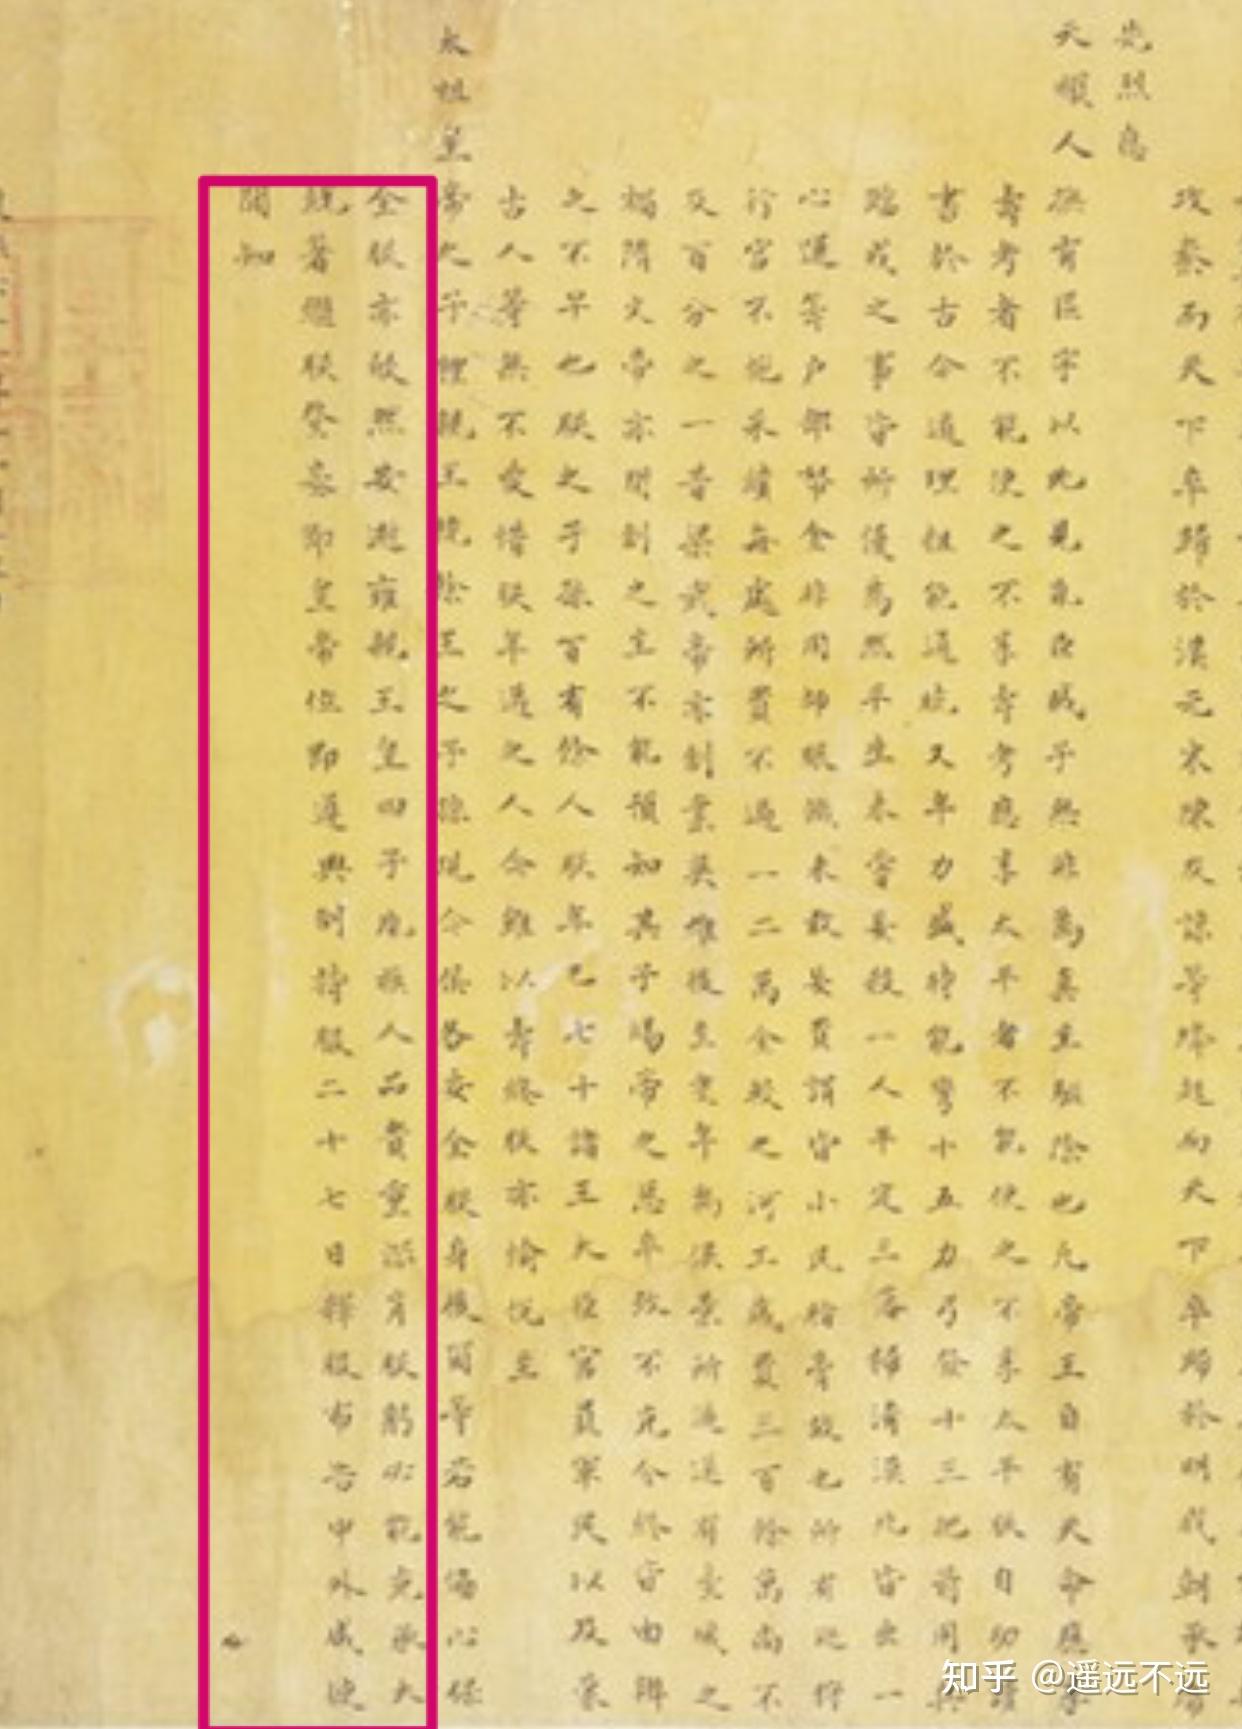 攻秦而天下卒歸於漢元末陳友諒等蜂起而天下卒歸於明我朝承席
先烈應
天順人撫有區宇以此見亂臣賊子無非為真主驅除也凡帝王自有天命應享
壽考者不能使之不享壽考應享太平者不能使之不享太平朕自幼讀
書於古今道理粗能通曉又年力盛時能彎十五力弓發十三把箭用兵
臨戎之事皆所優為然平生未嘗妄殺一人平定三藩掃清漠北皆出一
心運籌戶部帑金非用師賑饑未敢妄費謂皆小民脂膏故也所有巡狩
行宮不施采繢每處所費不過一二萬金較之河工歲費三百餘萬尚不
及百分之一昔梁武帝亦創業英雄後至耄年為侯景所逼遂有臺城之
禍隋文帝亦開創之主不能預知其子煬帝之惡卒致不克令終皆由辯
之不早也朕之子孫百有餘人朕年已七十諸王大臣官員軍民以及蒙
古人等無不愛惜朕年邁之人今雖以壽終朕亦愉悅至
太祖皇帝之子禮親王饒餘王之子孫現今俱各安全朕身後爾等若能協心保
全朕亦欣然安逝雍親王皇四子胤禛人品貴重深肖朕躬必能克承大
統著繼朕登基即皇帝位即遵典制持服二十七日釋服布告中外咸使
聞知
知乎 @遥远不远